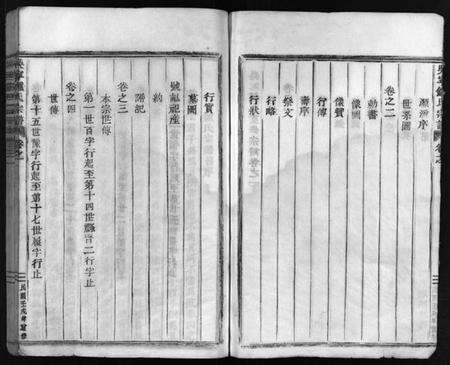 源流序
世系圖
卷之二
勅書
像圖
像贊
行傳
壽序
祭文
行略
行狀
行實
墓圖
祀產
約
雜記
卷之三
本宗世傳
第一世百字行起至第十四世
二行字止
卷之四
世傳
第十五世豫字行起至第十七世履字行止
民國壬戌年重修